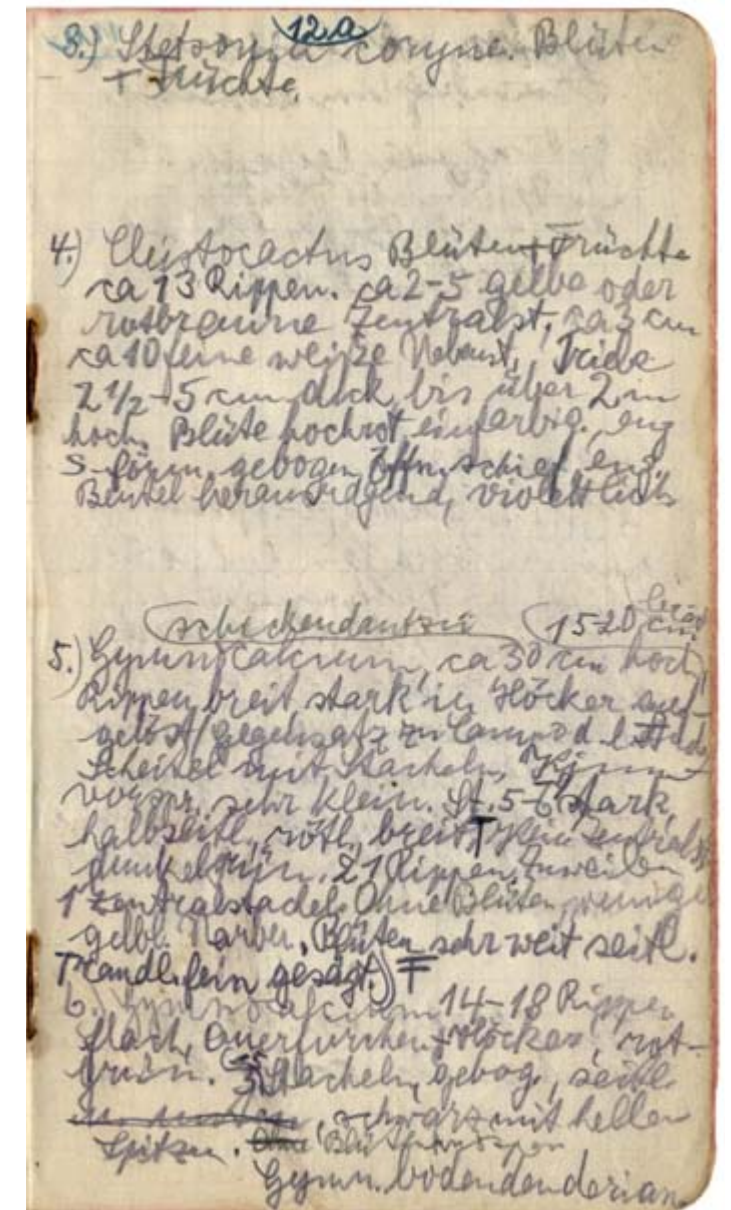 12a
3.) Stetsonia coryne. Blüten
+ Früchte.
4.) Cleistocactus Blüten + Früchte
ca 13 Rippen. ca 2-5 gelbe oder
rotbraune Zentralst. ca 3 cm
ca 10 feine weiße Nebenst, Triebe
2 1/2 - 5 cm dick, bis über 2 m
hoch. Blüte hochrot, einfarbig, eng
S-förm. gebogen Öffn. schief, eng.
Beutel herausragend, violettlich
schickendantzii 15-20 cm breit
5.) Gymnocalcium, ca 30 cm hoch,
Rippen breit stark in Höcker auf-
gelöst (gegensatz zu
Scheitel mit Stacheln,
vorspr. sehr klein. St. 5-6 stark,
halbseitl, rötl, breit, T kein Zentralst
dunkelgrün. 21 Rippen, Zuweilen
1 Zentralstachel. Ohne Blüten, wenige
gelbl. Narben, Blüten sehr weit seitl.
T randl. fein gesägt.) T
6. Gymnocalcium 14-18 Rippen
flach, Querfurchen + Höcker, rot-
grün. Stacheln, gebog, seitl.
schwarz mit hellen
Spitzen.
Gymn. bodendenderian.